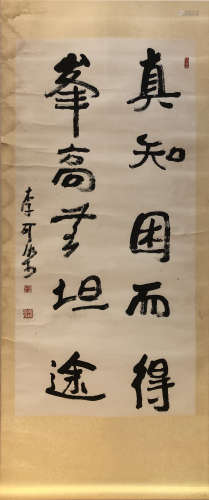 真知困而得
峯高無坦途
李可染